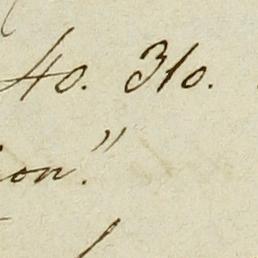 40. 310.
ion."